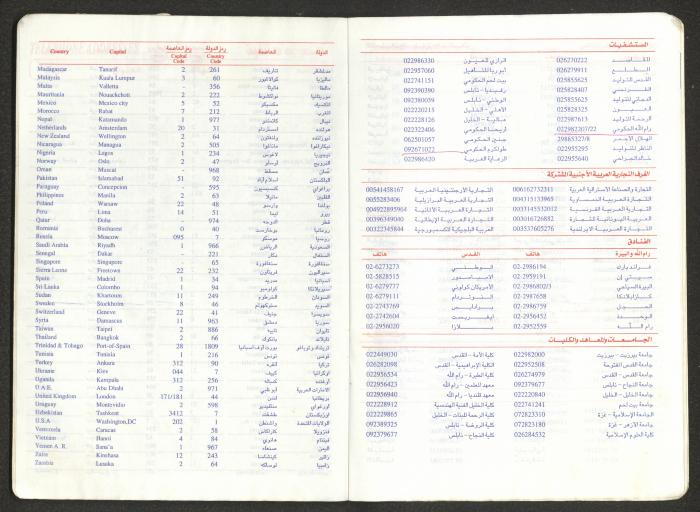 Country Capital رمز العاصمة Capital Code رمز الدولة Country Code العاصمة الدولة
Madagascar Tanarif 2 261 تناريف مدغشقر
Malaysia Kuala Lumpur 3 60 كوالالمبور ماليزيا
Malta Valletta - 356 فاليتا مالطا
Mauritania Nouackchott 2 222 نواكشوط موريتانيا
Mexico Mexico city 5 52 مكسيكو المكسيك
Morocco Rabat 7 212 الرباط المغرب
Nepal Katamando 1 977 كاتمندو نيبال
Netherlands Amsterdam 20 31 امستردام هولنده
New Zealand Wellington 2 64 ولنغتون نيوزلنده
Nicaragua Managua 2 505 ماناغوا نيكاراغوا
Nigeria Lagos 1 234 لاغوس نيجيريا
Norway Oslo 2 47 اوسلو النرويج
Oman Muscat - 968 مسقط عُمان
Pakistan Islamabad 51 92 اسلام أباد الباكستان
Paraguay Concepcion - 595 كنسبسيون برغواي
Philippines Manila 2 63 مانيلا الفلبين
Poland Warsaw 22 48 وارسو بولندا
Peru Lima 14 51 ليما بيرو
Qatar Doha - 974 الدوحه قطر
Romania Bucharest 0 40 بوخارست رومانيا
Russia Moscow 095 7 موسكو روسيا
Saudi Arabia Riyadh 1 966 الرياض السعودية
Senegal Dakar - 221 دكار السنغال
Singapore Singapore - 65 سنغافورة سنغافورة
Sierra Leone Freetown 22 232 فريتاون سيراليون
Spain Madrid 1 34 مدريد اسبانيا
Sri-Lanka Colombo 1 94 كولومبو سيريلانكا
Sudan Khartoum 11 249 الخرطوم السودان
Sweden Stockholm 8 46 ستوكهولم السويد
Switzerland Geneve 22 41 جنيف سويسرا
Syria Damascus 11 963 دمشق سوريا
Taiwan Taipei 2 886 تايبيه تايوان
Thailand Bangkok 2 66 بانكوك تايلاند
Trinidad & Tobago Port-of-Spain 28 1809
Tunisia Tunisia 1 216 تونس تونس
Turkey Ankara 312 90 انقره تركيا
Ukranie Kiev 044 7 كييف اوكرانيا
Uganda Kampala 312 256 كمباله أوغنده
U.A.E. Abu Dhabi 2 971 ابو ظبي الامارات العربية
United Kingdom London 171/181 44 لندن بريطانيا
Uruguay Montevidio 2 598
Uzbekistan Tashkent 3412 7 طشقند اوزبكستان
U.S.A Washington,DC 202 1 واشنطن الولايات المتحدة
Venezuela Caracar 2 58 كاراكاس فنزويلا
Vietnam Hanoi 4 84 هانوي فيتنام
Yemen A. R. Sana'a 1 967 صنعاء اليمن
Zaira Kinshasa 12 243 كينشاسا زائير
Zambia Lusaka 2 64 لوساكه زامبيا
المستشفيات
المقاصد 026270222 الرازي للعيون 022986330
المطلع 026279911 أبو ريا للتأهيل 022957060
القدس للتوليد 025855625 بيت لحم الحكومي 022741151
الفرنسي 025828407 رفيديا - نابلس 092390390
الدجاني للتوليد 025855625 الوطني - نابلس 092380039
العيون 025828325 الأهلي - الخليل 022220215
الرحمة للتوليد 022987613 عالية - الخليل 022228126
رام الله الحكومي 022982207/22 أريحا الحكومي 022322406
الهلال الأحمر 29885327/8 جنين الحكومي 062501057
الناظر للتوليد 022955295 طولكرم الحكومي 092671022
خالد الجراحي 022955640 الرعاية العربية 022986420
الغرف التجارية العربية الأجنبية المشتركة
التجارة والصناعة الاسترالية العربية 006162732311 التجارية الأرجنتينية العربية 00541458167
التجارية العربية النمساوية 004315133965 التجارية العربية البرازيلية 0055283406
التجارية العربية الفرنسية 0033145532012 التجارة العربية الالمانية 004922895964
العربية اليونانية للتجارة 003016726882 التجارة العربية الايطالية 00396349040
التجارة العربية الايرلندية 003537605276 العربية البلجيكية للكسمبورجية 00322345844
الفنادق
رام الله والبيرة هاتف القدس هاتف
غراند بارك 02-2986194 الوطني 02-6273273
سيتي إن 02-295919 الامباسادور 02-5828515
البيرة السياحي 02-2986802/3 الأمريكان كولوني 02-6279777
كازابلانكا 02-2987658 النوتردام 02-6279111
الجسجل 02-2986759 برادايس 02-2743769
الوحدة 02-2956452 ايفريست 02-2742604
رام الله 02-2952559 بلازا 02-2956020
الجامعات والمعاهد والكليات
جامعة بيرزيت - بيرزيت 022982000 كلية الأمة - القدس 022449030
جامعة القدس المفتوحة 022952508 الكلية الإبراهيمية - القدس 026282098
جامعة القدس - القدس 026274979 كلية الطيرة - رام الله 022956534
جامعة النجاح - نابلس 092379677 معهد المعلمين - رام الله 022956423
جامعة الخليل - الخليل 022220840 معهد قلنديا - رام الله 022956940
جامعة بيت لحم 022741241 كلية الخليل الفنية الهندسية 022228912
الجامعة الإسلامية - غزة 072823310 كلية الرحمة للبنات - الخليل 022229865
جامعة الأزهر - غزة 072823180 كلية الروضة - نابلس 092389325
كلية العلوم الإسلامية 026284532 كلية النجاح - نابلس 092379677